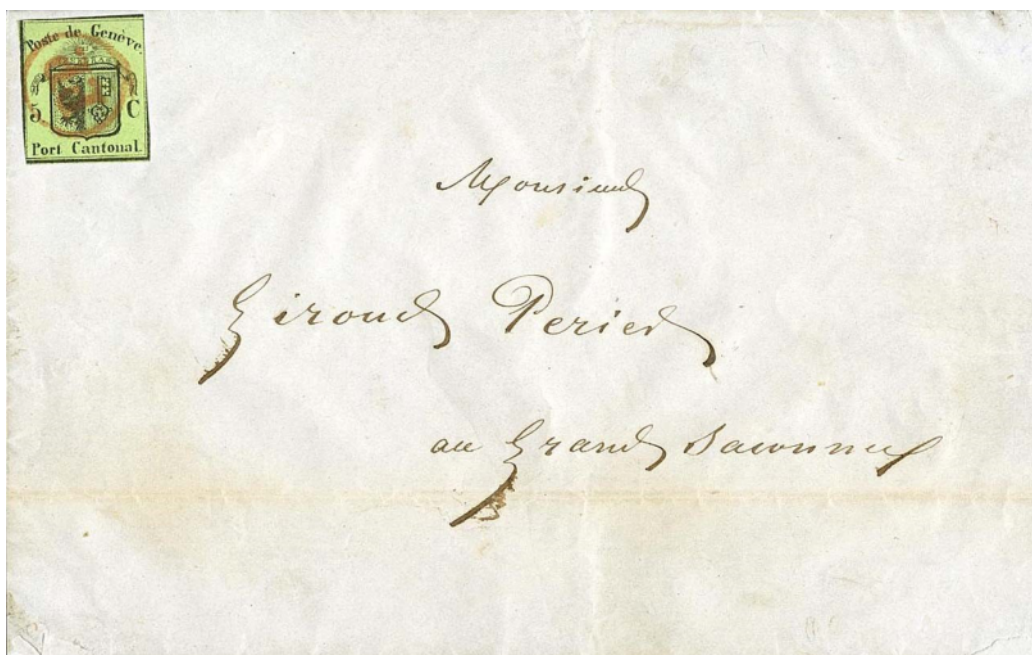 Poste de Genève
5 C
Port Cantonal
Monsieur
Giroud Perier
au Grand Saconnex